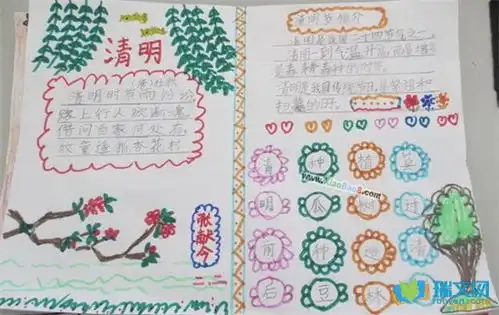 清明
(唐)杜牧
清明时节雨纷纷
路上行人欲断魂
借问酒家何处有
牧童遥指杏花村
二.二
清明节简介
清明是我国二十四节气之一,
清明一到气温升高雨量增
是春耕春种的时节。
清明是我国传统节日,是祭祖和
扫墓的日子。
清 种 植
www.XiaoBao8.com
明 瓜 树 过
前 种 清
后 豆 林
瑞文网